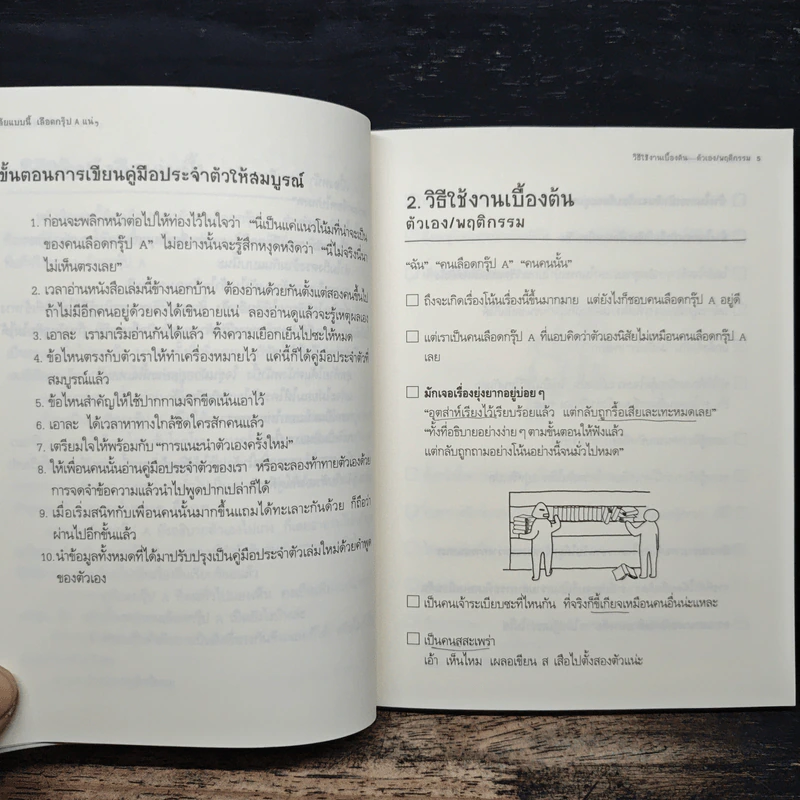 เลือดกรุ๊ป A แน่ๆ
ขั้นตอนการเขียนคู่มือประจำตัวให้สมบูรณ์
1. ก่อนจะพลิกหน้าต่อไปให้ท่องไว้ในใจว่า “นี่เป็นแค่แนวโน้มที่น่าจะเป็น
ของคนเลือดกรุ๊ป A” ไม่อย่างนั้นจะรู้สึกหงุดหงิดว่า “นี่ไม่จริงนี่นา
ไม่เห็นตรงเลย”
2. เวลาอ่านหนังสือเล่มนี้ข้างนอกบ้าน ต้องอ่านด้วยกันตั้งแต่สองคนขึ้นไป
ถ้าไม่มีอีกคนอยู่ด้วยคงได้เขินอายแน่ ลองอ่านดูแล้วจะรู้เหตุผลเอง
3. เอาละ เรามาเริ่มอ่านกันได้แล้ว ทิ้งความเยือกเย็นไปซะให้หมด
4. ข้อไหนตรงกับตัวเราให้ทำเครื่องหมายไว้ แค่นี้ก็ได้คู่มือประจำตัวที่
สมบูรณ์แล้ว
5. ข้อไหนสำคัญให้ใช้ปากกาเมจิกขีดเน้นเอาไว้
6. เอาละ ได้เวลาหาทางใกล้ชิดใครสักคนแล้ว
7. เตรียมใจให้พร้อมกับ “การแนะนำตัวเองครั้งใหม่”
8. ให้เพื่อนคนนั้นอ่านคู่มือประจำตัวของเรา หรือจะลองท้าทายตัวเองด้วย
การจดจำข้อความแล้วนำไปพูดปากเปล่าก็ได้
9. เมื่อเริ่มสนิทกับเพื่อนคนนั้นมากขึ้นแถมได้ทะเลาะกันด้วย ก็ถือว่า
ผ่านไปอีกขั้นแล้ว
10. นำข้อมูลทั้งหมดที่ได้มาปรับปรุงเป็นคู่มือประจำตัวเล่มใหม่ด้วยคำพูด
ของตัวเอง
วิธีใช้งานเบื้องต้น—ตัวเอง/พฤติกรรม 5
2. วิธีใช้งานเบื้องต้น
ตัวเอง/พฤติกรรม
“ฉัน” “คนเลือดกรุ๊ป A” “คนคนนั้น”
ถึงจะเกิดเรื่องโน้นเรื่องนี้ขึ้นมากมาย แต่ยังไงก็ชอบคนเลือดกรุ๊ป A อยู่ดี
แต่เราเป็นคนเลือดกรุ๊ป A ที่แอบคิดว่าตัวเองนิสัยไม่เหมือนคนเลือดกรุ๊ป A
เลย
มักเจอเรื่องยุ่งยากอยู่บ่อยๆ
“อุตส่าห์เรียงไว้เรียบร้อยแล้ว แต่กลับถูกรื้อเสียเละเทะหมดเลย”
“ทั้งที่อธิบายอย่างง่ายๆ ตามขั้นตอนให้ฟังแล้ว
แต่กลับถูกถามอย่างโน้นอย่างนี้จนมั่วไปหมด”
เป็นคนเจ้าระเบียบซะที่ไหนกัน ที่จริงก็ขี้เกียจเหมือนคนอื่นน่ะแหละ
เป็นคนสสะเพร่า
เอ้า เห็นไหม เผลอเขียน ส เสือไปตั้งสองตัวแน่ะ